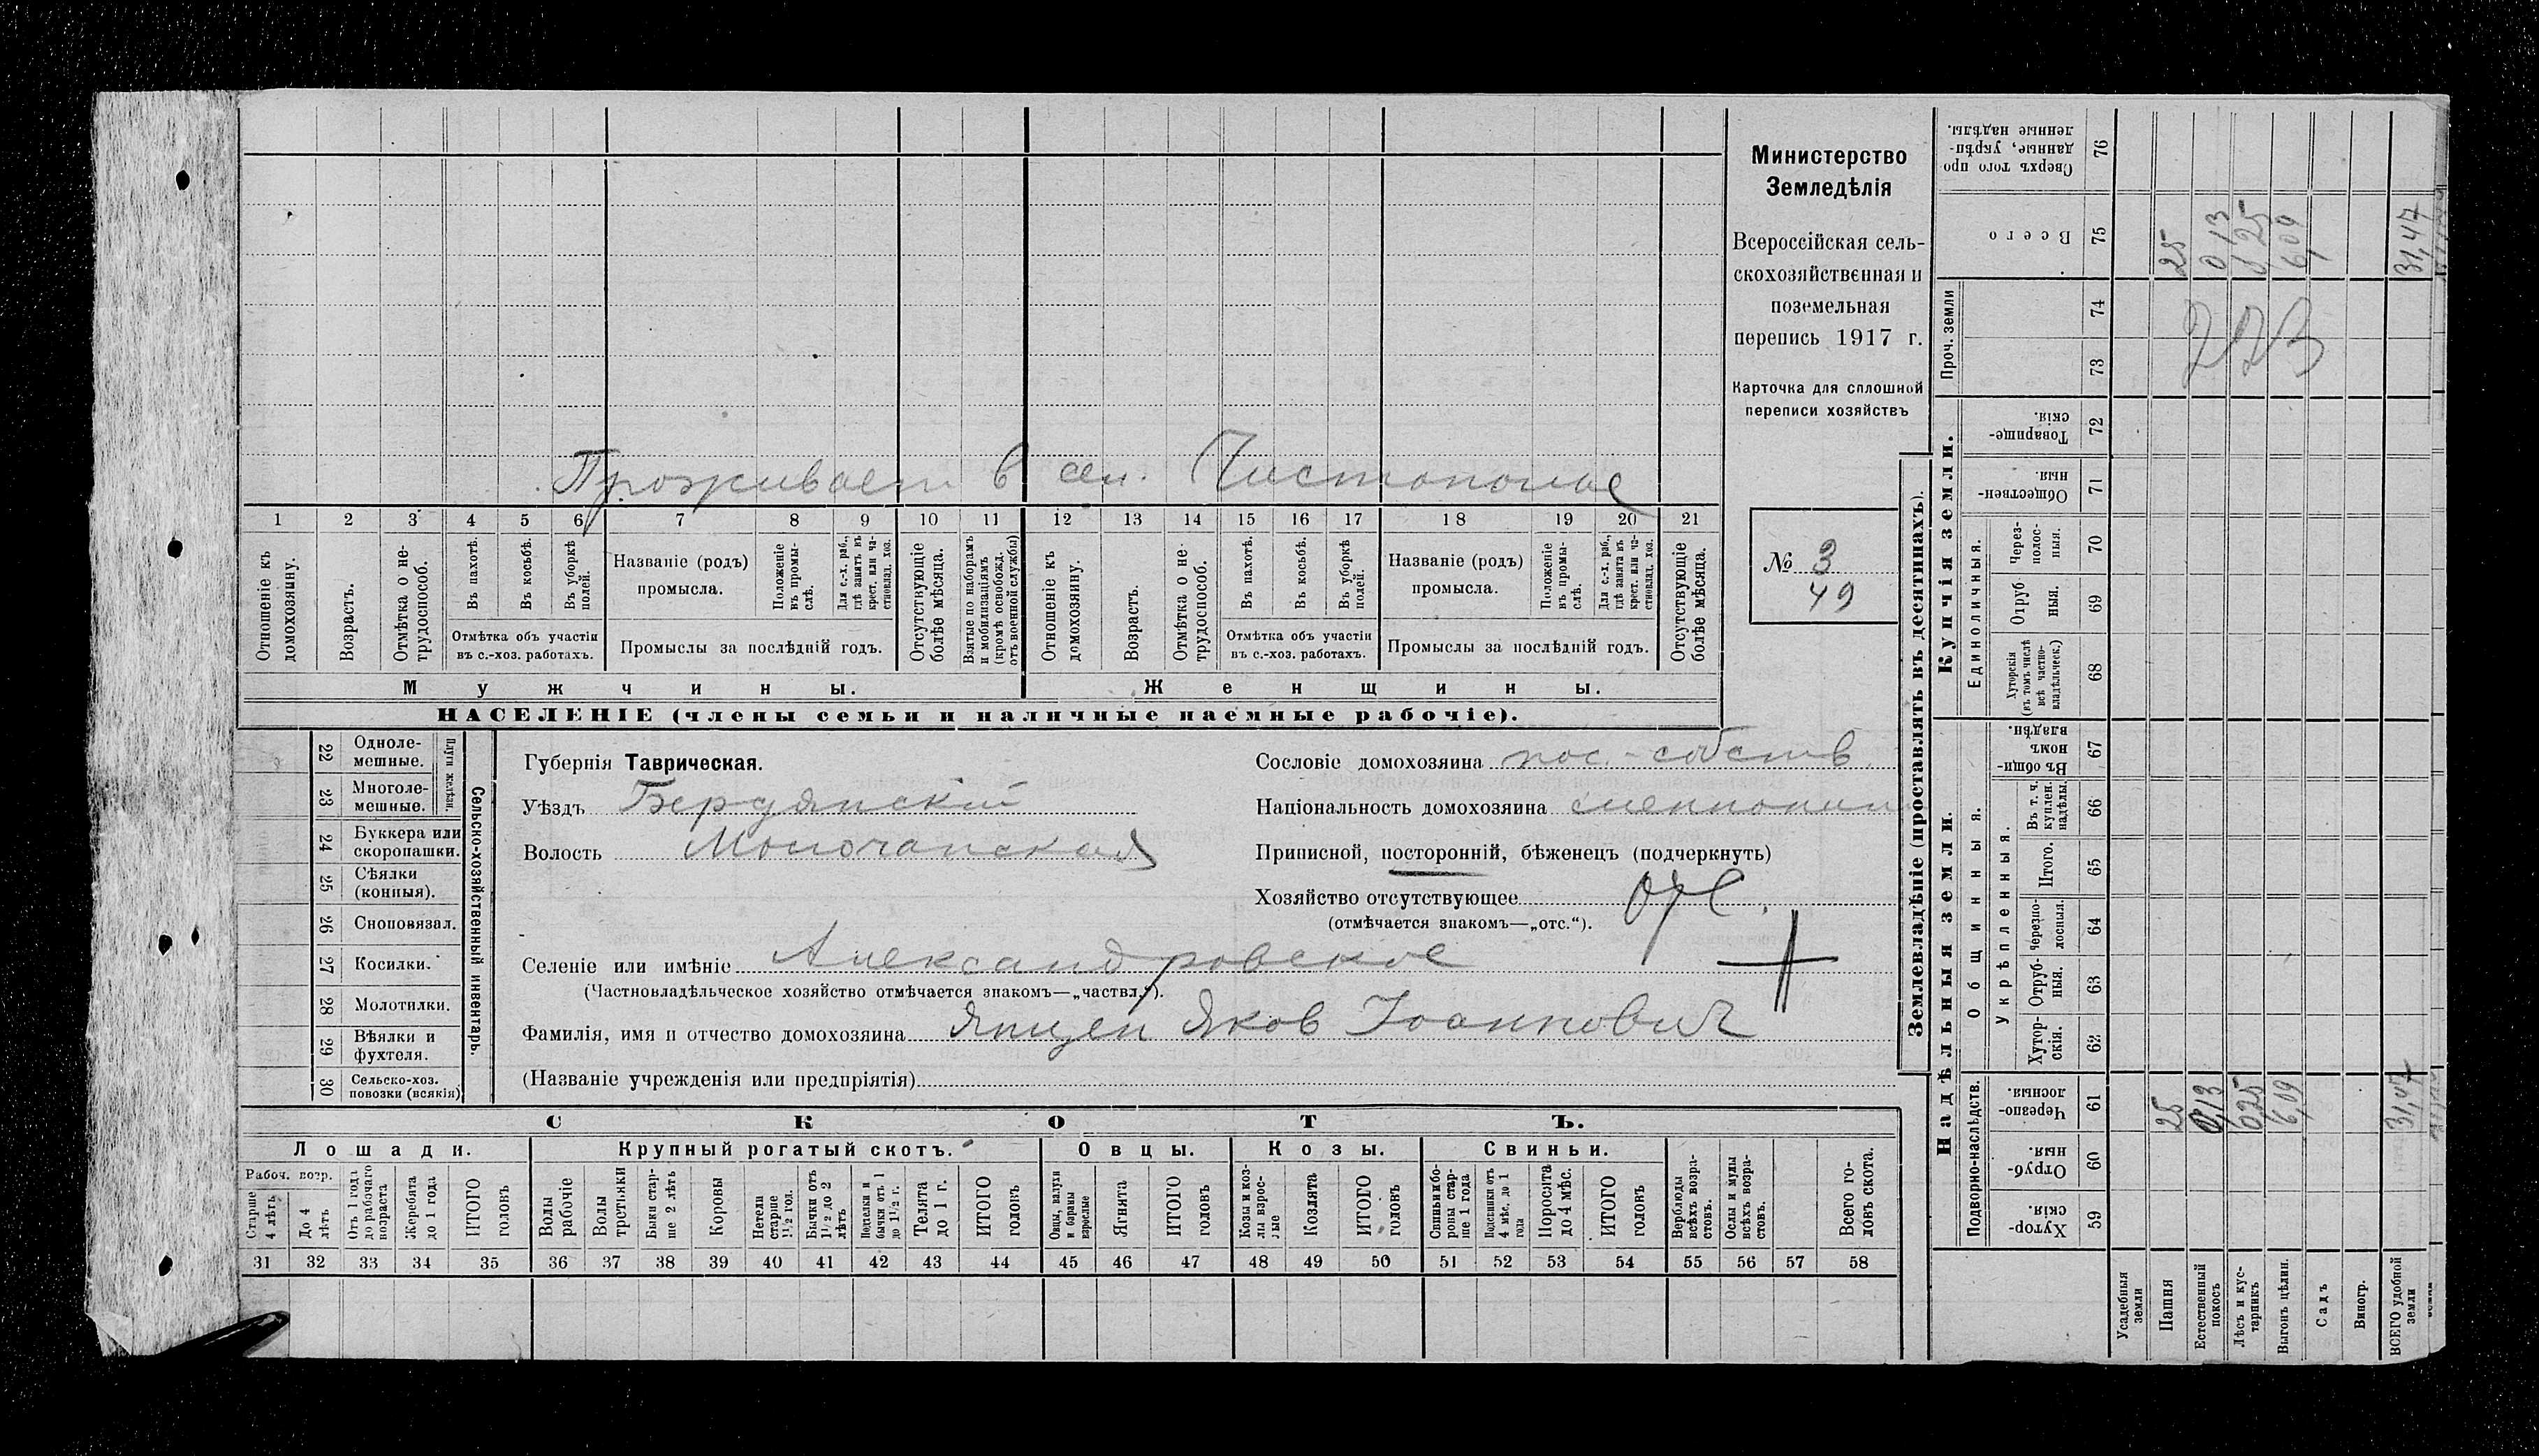 Министерство
Земледѣлія
Всероссійская сель-
скохозяйственная и
поземельная
перепись 1917 г.
Карточка для сплошной
переписи хозяйствъ
№ 3
49
Проживает в сел. Чистополье
1 2 3 4 5 6 7 8 9 10 11 12 13 14 15 16 17 18 19 20 21
Отношеніе къ домохозяину.
Возрастъ.
Отмѣтка о не-трудоспособ.
Въ пахотѣ.
Въ косьбѣ.
Въ уборкѣ полей.
Отмѣтка объ участіи
въ с.-хоз. работахъ.
Названіе (родъ)
промысла.
Положеніе въ промы-слѣ.
Для с.-х. раб., гдѣ занятъ въ крест. или ча-стновлад. хоз.
Промыслы за послѣдній годъ.
Отсутствующіе болѣе мѣсяца.
Взятые по наборамъ и мобилизаціямъ (кромѣ освобожд. отъ военной службы)
Отношеніе къ домохозяину.
Возрастъ.
Отмѣтка о не-трудоспособ.
Въ пахотѣ.
Въ косьбѣ.
Въ уборкѣ полей.
Отмѣтка объ участіи
въ с.-хоз. работахъ.
Названіе (родъ)
промысла.
Положеніе въ промы-слѣ.
Для с.-х. раб., гдѣ занята въ крест. или ча-стновлад. хоз.
Промыслы за послѣдній годъ.
Отсутствующіе болѣе мѣсяца.
Мужчины. Женщины.
НАСЕЛЕНІЕ (члены семьи и наличные наемные рабочіе).
22 Одноле-мешные.
23 Многоле-мешные.
Плуги желѣзн.
24 Буккера или скоропашки.
25 Сѣялки (конныя).
26 Сноповязал.
27 Косилки.
28 Молотилки.
29 Вѣялки и фухтеля.
30 Сельско-хоз. повозки (всякія)
Сельско-хозяйственный инвентарь.
Губернія Таврическая.
Уѣздъ Бердянскій
Волость Молочанская
Сословіе домохозяина пос.-собств.
Національность домохозяина меннонит
Приписной, посторонній, бѣженецъ (подчеркнуть)
Хозяйство отсутствующее отс.
(отмѣчается знакомъ—„отс.“).
Селеніе или имѣніе Александровское
(Частновладѣльческое хозяйство отмѣчается знакомъ—„частвл.“).
Фамилія, имя и отчество домохозяина Янцен Яков Іоаннович
(Названіе учрежденія или предпріятія)
СКОТЪ.
Лошади. Крупный рогатый скотъ. Овцы. Козы. Свиньи.
Рабоч. возр.
Старше 4 лѣтъ
До 4 лѣтъ
Отъ 1 года до рабочаго возраста
Жеребята до 1 года
ИТОГО головъ
Волы рабочіе
Волы третьяки
Быки стар-ше 2 лѣтъ
Коровы
Нетели старше 1 1/2 год.
Бычки отъ 1 1/2 до 2 лѣтъ
Подтелки и бычки отъ 1 до 1 1/2 г.
Телята до 1 г.
ИТОГО головъ
Овцы, валухи и бараны взрослые
Ягнята
ИТОГО головъ
Козы и коз-лы взрос-лые
Козлята
ИТОГО головъ
Свиньи и бо-ровы стар-ше 1 года
Подсвинки отъ 4 мѣс. до 1 года
Поросята до 4 мѣс.
ИТОГО головъ
Верблюды всѣхъ возра-стовъ.
Ослы и мулы всѣхъ возра-стовъ.
Всего го-ловъ скота.
31 32 33 34 35 36 37 38 39 40 41 42 43 44 45 46 47 48 49 50 51 52 53 54 55 56 57 58
Землевладѣніе (проставлять въ десятинахъ).
Надѣльныя земли.
Подворно-наслѣдств.
Хутор-скія. 59
Отруб-ныя. 60
Черезпо-лосныя. 61
Общинныя.
Укрѣпленныя.
Хутор-скія. 62
Отруб-ныя. 63
Черезпо-лосныя. 64
Итого. 65
Въ т. ч. куплен. надѣлы. 66
Въ общи-номъ владѣн. 67
Купчія земли.
Единоличныя.
Хуторскія (въ томъ числѣ всѣ частно-владѣльческ.) 68
Отруб ныя. 69
Через-полос-ныя. 70
Обществен-ныя. 71
Товарище-скія. 72
Проч. земли
73 74
Всего 75
Сверхъ того про данные, укрѣп-ленные надѣлы. 76
Усадебныя земли
Пашня 25 25
Естественный покосъ 0,13 0,13
Лѣсъ и кус-тарникъ 0,25 0,25
Выгонъ цѣлин. 6,09 6,09
Садъ
Виногр.
ВСЕГО удобной земли 31,47 31,47